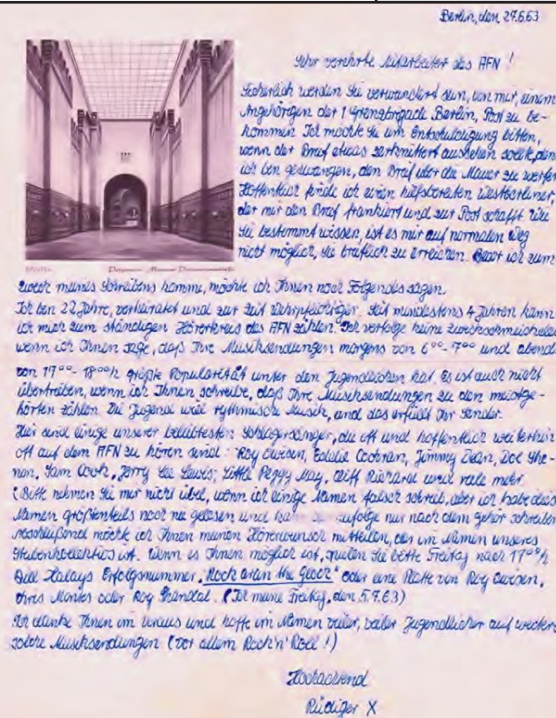 Berlin, den 27.6.63
Sehr verehrte Mitarbeiter des AFN !
Sicherlich werden Sie verwundert sein, von mir, einem
Angehörigen der 1. Grenzbrigade Berlin, Post zu be-
kommen. Ich möchte Sie um Entschuldigung bitten,
wenn der Brief etwas zerknittert aussehen sollte, denn
ich bin gezwungen, den Brief über die Mauer zu werfen.
Hoffentlich finde ich einen hilfsbereiten Westberliner,
der mir den Brief frankiert und zur Post schafft. Wie
Sie bestimmt wissen, ist es mir auf normalen Weg
nicht möglich, Sie brieflich zu erreichen. Bevor ich zum
Zweck meines Schreibens komme, möchte ich Ihnen noch Folgendes sagen.
Ich bin 22 Jahre, verheiratet und zur Zeit Wehrpflichtiger. Seit mindestens 4 Jahren kann
ich mich zum ständigen Hörerkreis des AFN zählen. Ich verfolge keine
wenn ich Ihnen sage, daß Ihre Musiksendungen morgens von 6⁰⁰- 7⁰⁰ und abends
von 17⁰⁰- 18⁰⁰h größte Popularität unter den Jugendlichen hat. Es ist auch nicht
übertrieben, wenn ich Ihnen schreibe, daß Ihre Musiksendungen zu den meistge-
hörten zählen. Die Jugend will rythmische Musik, und das erfüllt Ihr Sender.
Hier sind einige unserer beliebtesten Schlagersänger, die oft und hoffentlich weiterhin
oft auf dem AFN zu hören sind: Roy Eddie Cochran, Jimmy Dean, Doc She-
nan, Sam Cook, Jerry Lee Lewis, Little Peggy May, Cliff Richard und viele mehr.
(Bitte nehmen Sie mir nicht übel, wenn ich einige Namen falsch schreib, aber ich habe diese
Namen größtenteils noch nie gelesen und nur nach dem Gehör schreibe
Abschließend möchte ich Ihnen meinen Hörerwunsch mitteilen, der im Namen unseres
ist. Wenn es Ihnen möglich ist, spielen Sie bitte Freitag nach 17⁰⁰h
Bill Halays Erfolgsnummer "Rock the Glock" oder eine Platte von Roy
Chris Montes oder Roy (Ich meine Freitag, den 5.7.63)
Ich danke Ihnen im Voraus und hoffe im Namen vieler, vieler Jugendlicher auf weitere
solche Musiksendungen. (vor allem Rock'n' Roll !)
Hochachtend
Rüdiger X